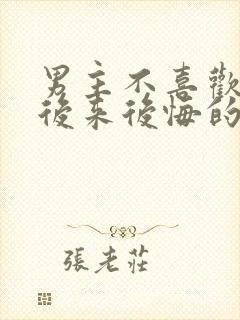 男主不喜歡
後來後悔的
張老莊